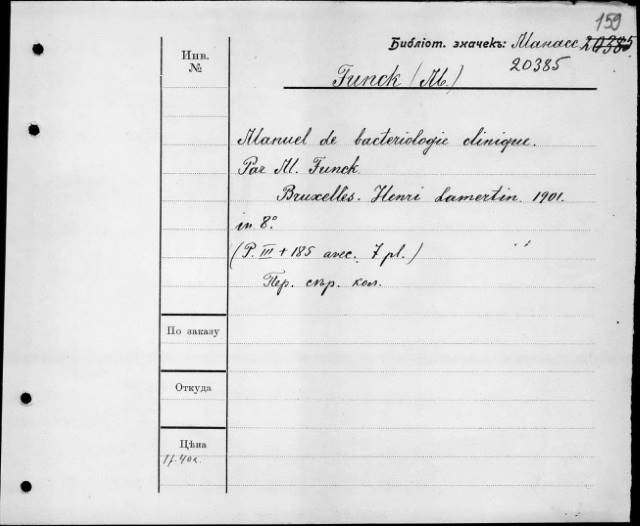 159
Библіот. значекъ: Манасс 20385
20385
Инв.
№
Funck (M.)
Manuel de bacteriologie clinique.
Par M. Funck.
Bruxelles. Henri Lamertin. 1901.
in 8°.
(P. III + 185 avec. 7 pl.)
Пер. спр. кол.
По заказу
Откуда
Цѣна
1р. 40к.